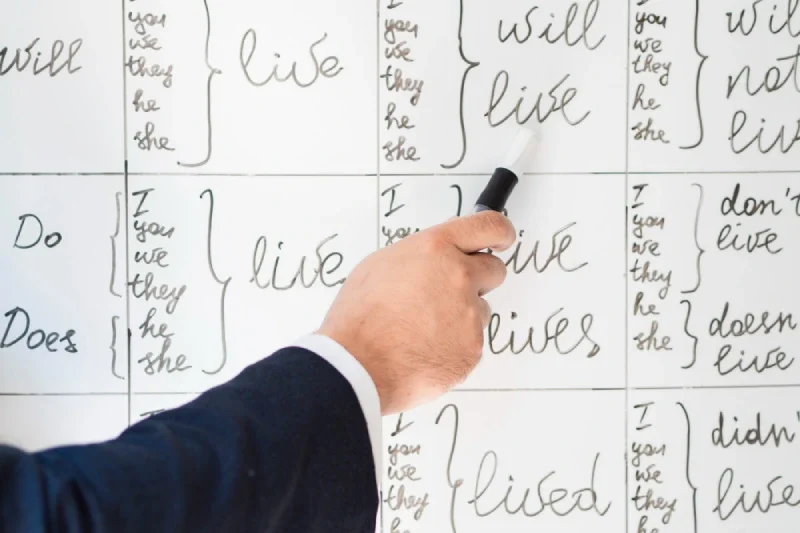 will
you
we
they
he
she
live
I
you
we
they
he
she
will
live
you
we
they
he
she
will
not
live
Do
Does
I
you
we
they
he
she
live
I
you
live
lives
I
you
we
they
he
she
don't
live
doesn
live
I
you
we
they
he
lived
I
you
we
they
he
didn'
live